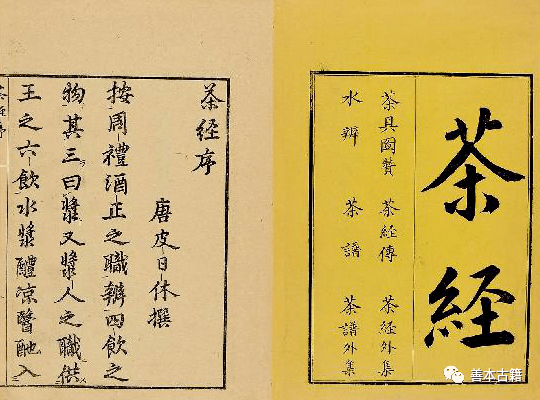 茶經
茶具圖贊 茶經傳 茶經外集
水辨 茶譜 茶譜外集
茶經序
唐皮日休撰
按周禮酒正之職辨四飲之
物其三曰漿又漿人之職供
王之六飲水漿醴凉醫酏入
善本古籍